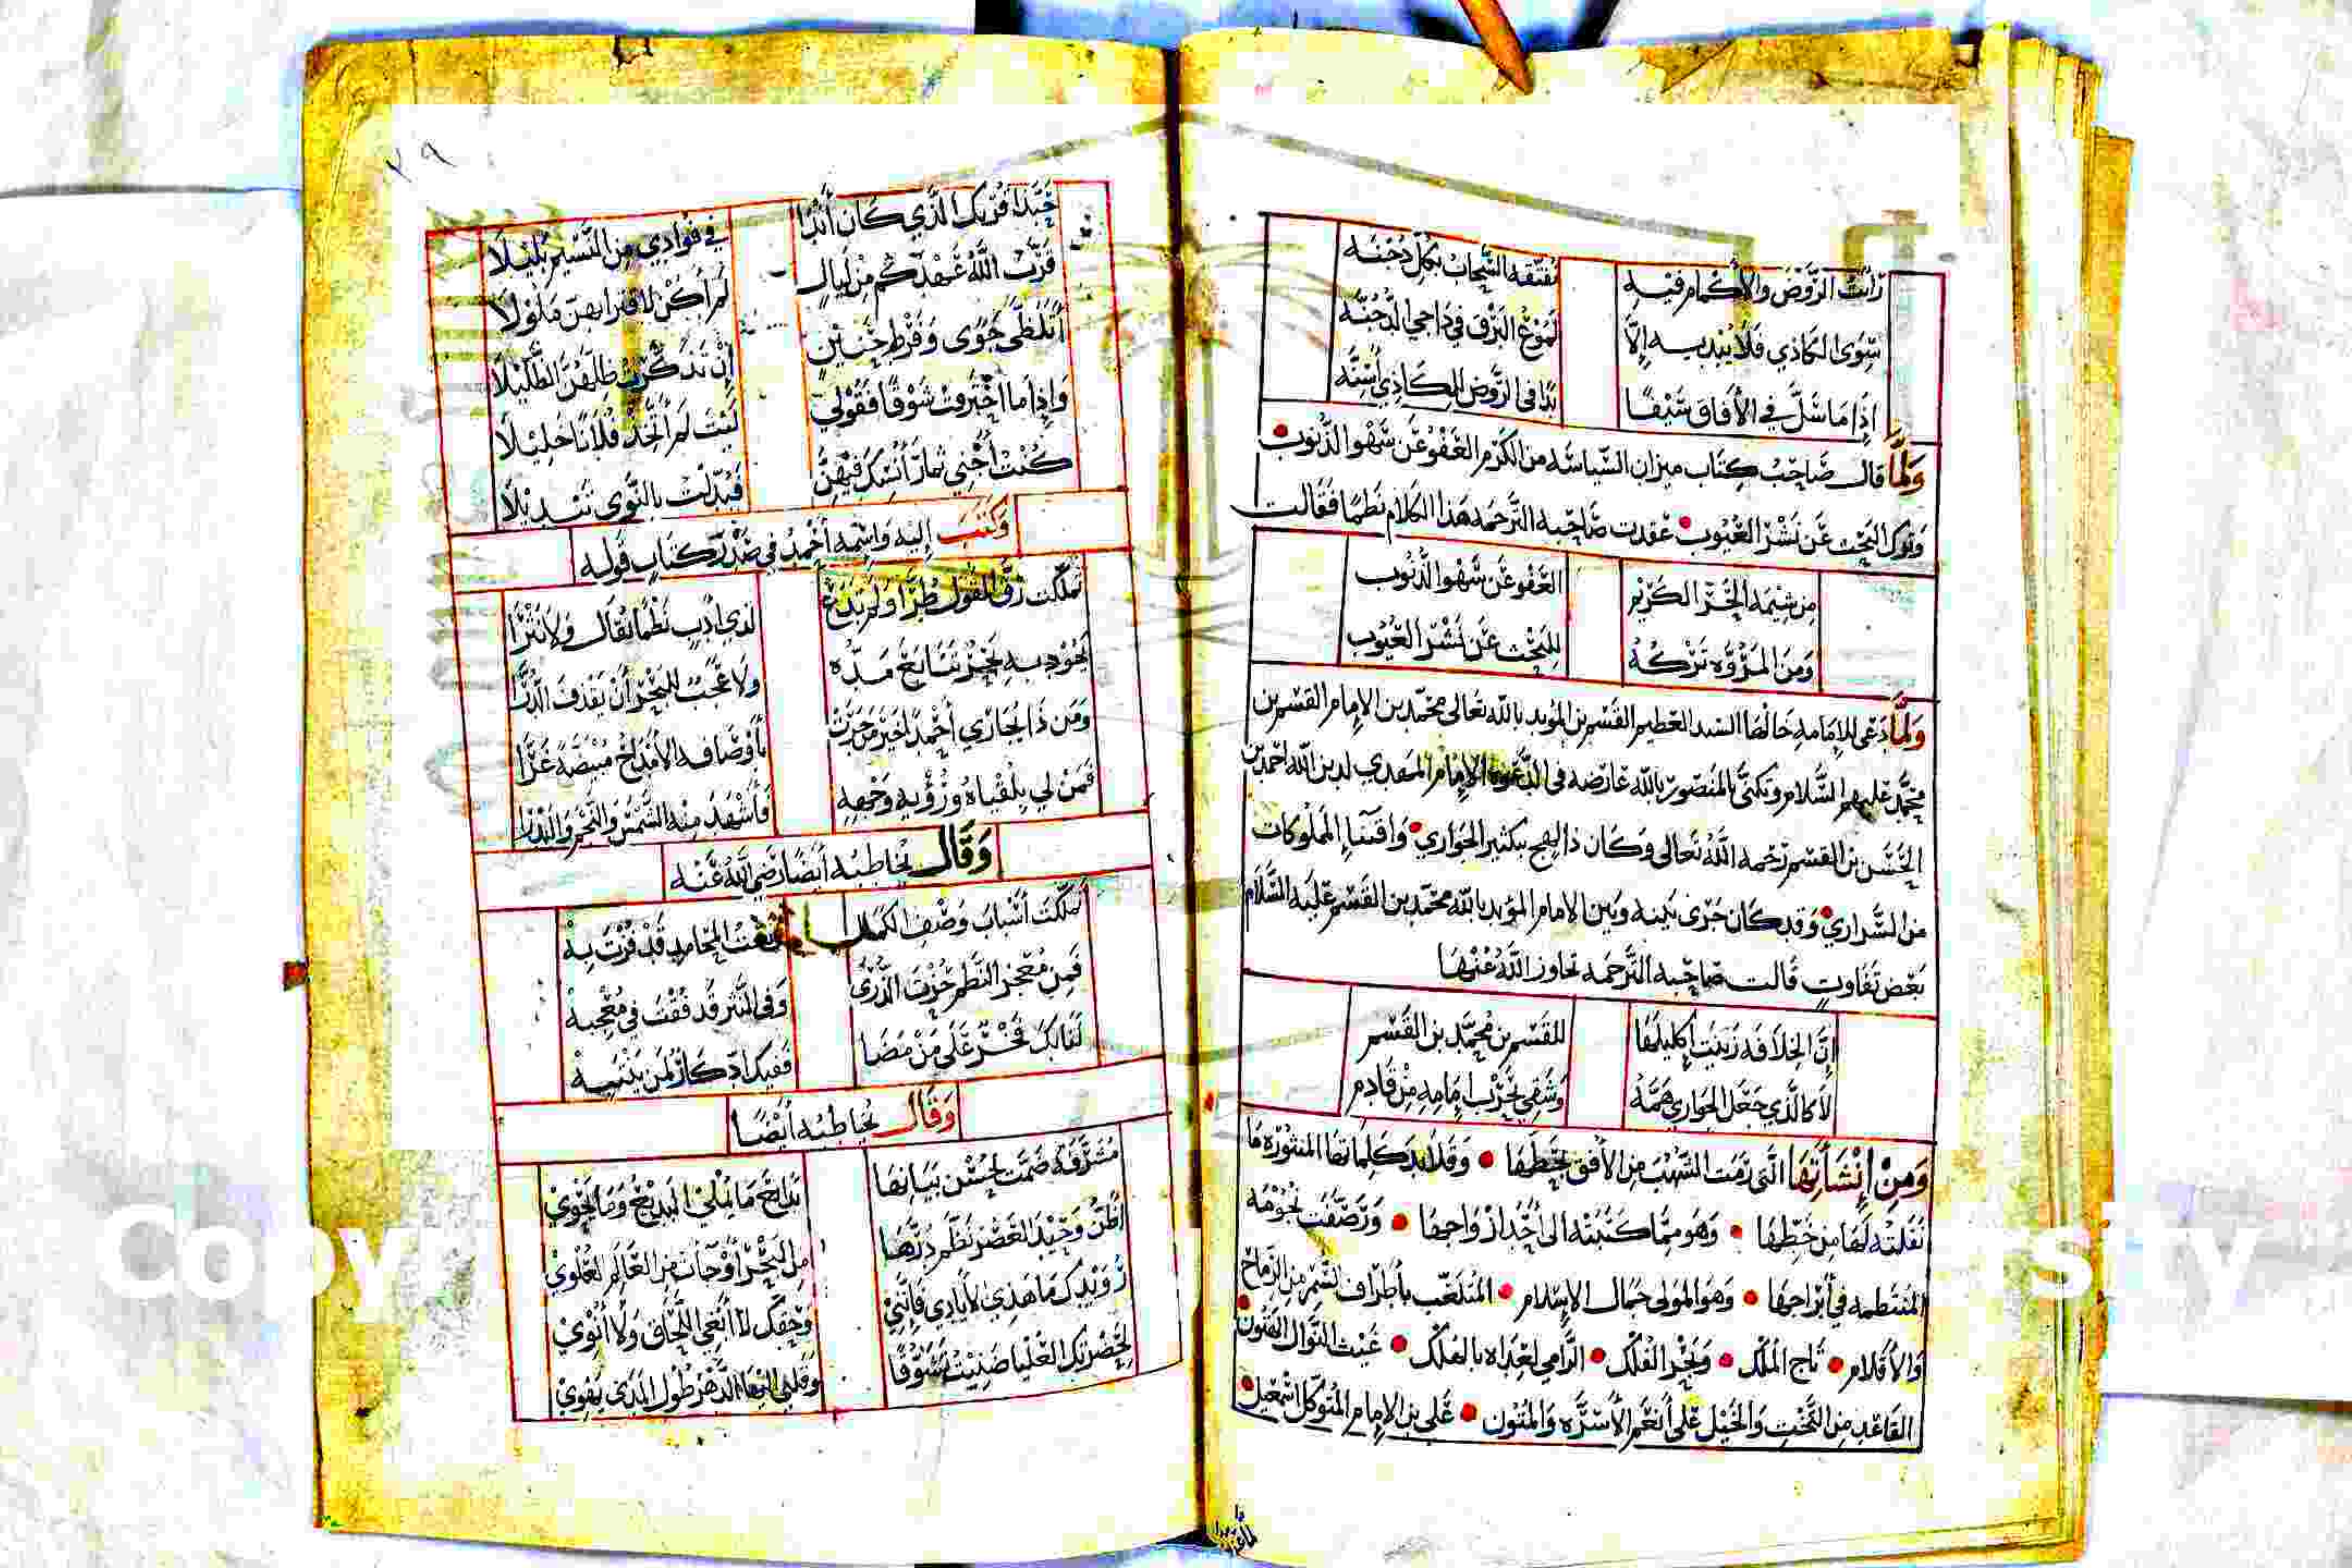 رَأيت الرَّوْضَ والأكمام فيه تفتّقه السَّحاب بكل دُجنّه
سِوَى الكاذي فلا يُبْديه إلّا لموعُ البَرْق في دَاجي الدُّجُنَّه
إذا ما سَلَّ في الأفاق سَيْفًا بدا في الرَّوض للكاذي أسِنَّه
وَلَمَّا قال صَاحبُ كتاب ميزان السّياسة من الكرم العَفْو عَن سَهْو الذنوب
وترك البَحْث عَن نَشْر العيُوب عقدت صَاحبة الترجمه هذا الكلام نَظمًا فقالت
مِن شيمَة الحُرّ الكَريم العَفو عَن سَهْو الذنُوب
وَمنَ المرُوَّه تركهُ للبَحْث عَن نَشْر العُيُوب
وَلَمَّا دَعَى للإمامةِ خَالهَا السَيد العظيم القسم بن المؤيد بالله تعالى محمّد بن الإمام القسم بن
محمَّد عليهم السَّلام وتكنّى بالمنصور بالله عَارضه في الدَّعوه الإمام المهدي لدين الله احمد بن
الحَسَن بن القسم رَحمه اللهُ تعالى وَكان ذا لهج بكثير الجَواري وَاقتنا المملُوكات
من السَّراري وَقد كان جَرَى بَينه وبَين الامام المؤيد بالله محمّد بن القسم عَليه السَّلام
بَعْض تفاوتٍ قالت صَاحبه التَّرجمه تجاوز اللهُ عَنْهَا
إنّ الخلافَة زيّنت إكليلَهَا للقسم بن مُحمَّد بن القسم
لا كالذي جَعَل الجواري هَمَّهُ وَشفي بحَرْب إمامِهِ مِنْ قادِم
وَمِنْ إنْشَأتها الَّتي رَمَت الشُهُب مِن الأفق بخَطَفها وقلايد كلماتها المنثوره مَا
نقلته لهَا مِن خَطِّهَا وَهو ممّا كتبَتْه الى أحَد ازواجهَا وَرَصَّفَت نجُومَه
المنتظمه في أبراجهَا وَهو المولى جمال الإسلام المتلعّب بأطراف السُّمر من الرمَاح
وَالأقلام تاج المُلْك وَبَحْر الفلك الرَّامي لعداه بالهُلْك غَيث النوال الهتُون
القاعد من التَّخْتِ وَالخَيْل عَلى أنعَم الأسِرَّه وَالمتُون عَلي بن الإمام المتوكل اسْمَعيل
٢٩
حَبَّذا قُرْبك الَّذي كَان أندَا في فؤادي مِن النَّسيم بَليلَا
قرَّبَ اللهُ عَهْدَكم مِن ليالٍ لم أكنْ لاقترابهنّ مَلوْلَا
أتلظّى جَوًى وَفَرْط حَنينٍ إنْ تذكَّرتُ ظلَّهُنَّ الظَّليْلَا
وَإذا ما احْترقت شوْقًا فقولي لَيْت لم أتّخذ فلانًا خليلَا
كنت أجني ثمارَ أنسِك فيهنّ فبُدّلْت بالنَّوى تبْديْلَا
وَكتب إليه وَاسْمه أحْمدُ في صَدْر كتابٍ قوله
تملّكت رِقَّ القول طُرًّا ولم تدَعْ لذي أدَبٍ نَظمًا يقال ولا نَثْرَا
يجُود به بَحْرٌ تتابَعَ مَدّه ولا عَجبٌ للبَحْر أنْ يَقذف الدّرَّا
وَمن ذا يُجَاري أحْمدَ الخير من جَرَتْ بأوْصَافه الأمدَاحُ مُبْيَضَّةً غَرَّا
فمَنْ لي بلقياهُ ورُؤيه وَجْهِهِ فأشْهَدَ منه الشَّمْسَ والنَّجْم والبَدْرَا
وَقَالَ يخاطبه أيضًا رضي الله عَنْه
تملكت أسْبَاب وَصْف الكمال المحَامد قَدْ فُزْتَ بهْ
فمِن مُعْجز النَّظم حُزْتَ الذرى وَفي النثر قد فُقْت في مُعْجبهْ
لئن كان فَخْرٌ عَلى مَنْ مَضَا ففيك ادّكارٌ لمن ينتبهْ
وَقَال يخاطبه أيضًا
مُشَرَّفة ضمّت لحُسْن بيَانهَا بدايعَ مَا يُمْلي البَديعُ وَمَا يَحْوي
أظنّ وَحِيْدَ العَصْر نظّم دُرَّهَا مِن البَحْر أوْ جآت مِنَ العَالَم العُلْوي
رُوَيْدك مَا هَذي الأيادي فإنَّني وَحقِّك لا أبْغي اللَّحاق وَلا أنْوي
لحَضْرتك العُلْيا ضنيْتُ تشَوُّقًا وقلبي الدَّهْرَ طُول المَدَى يَهْوي